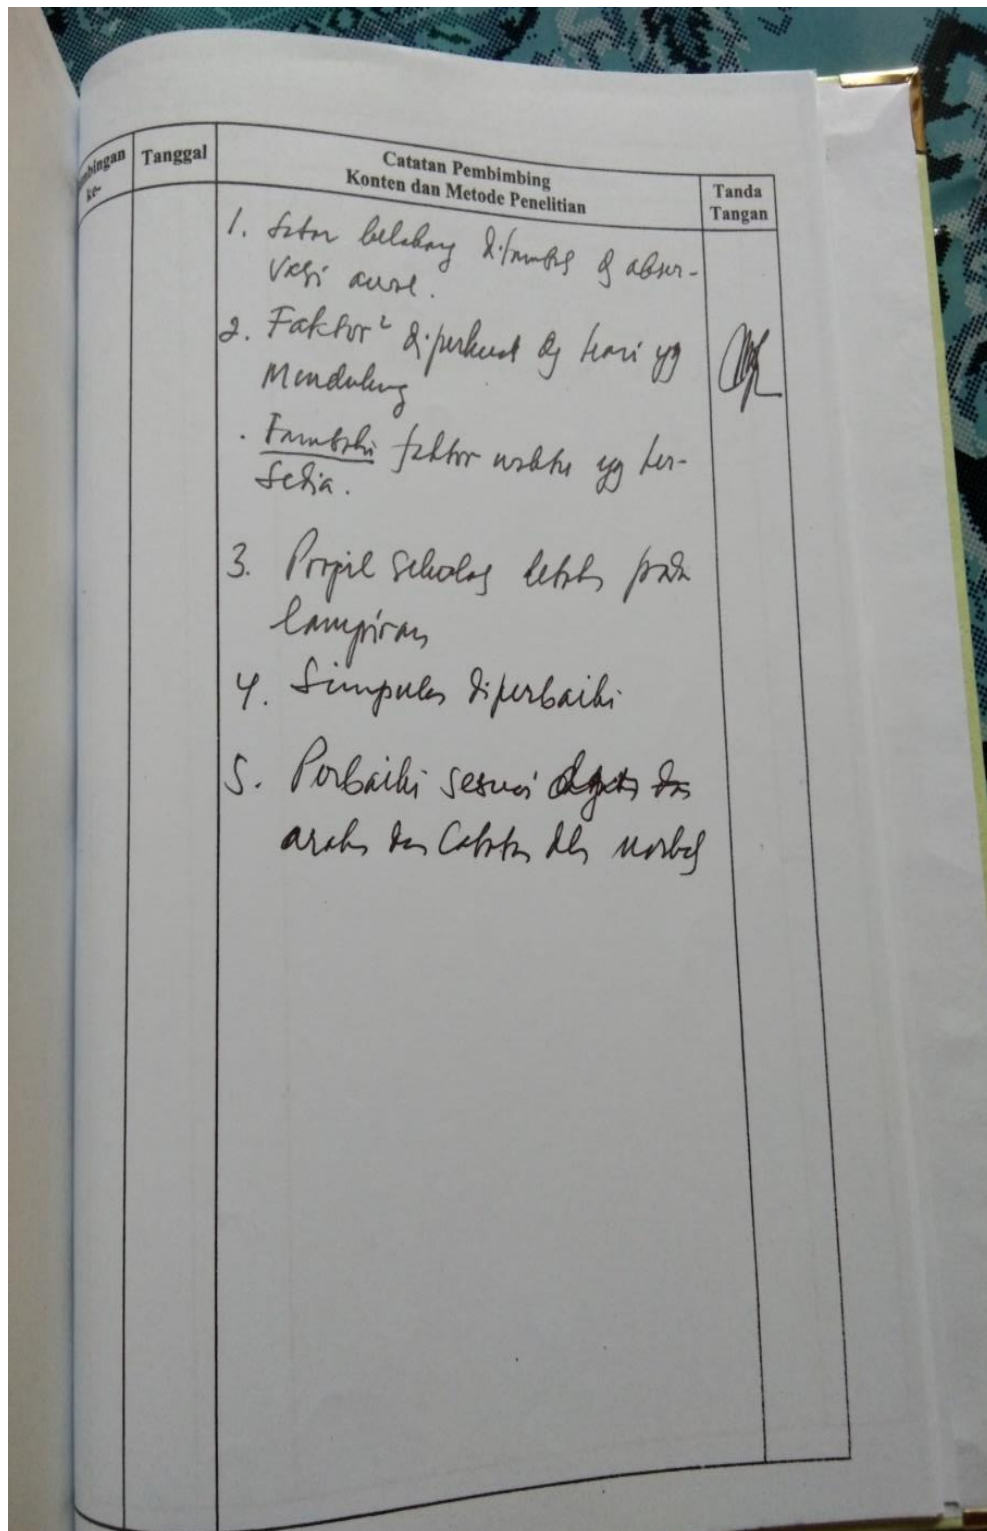 mbingan ke-
Tanggal
Catatan Pembimbing
Konten dan Metode Penelitian
Tanda
Tangan
1. Latar belakang ditambah dg obser-
vasi awal.
2. Faktor² diperkuat dg teori yg
Mendukung
. Tambahi faktor waktu yg ter-
sedia.
3. Propil sekolah letak pada
lampiran
4. Simpulan diperbaiki
5. Perbaiki sesuai
arahan dan Catatan dlm